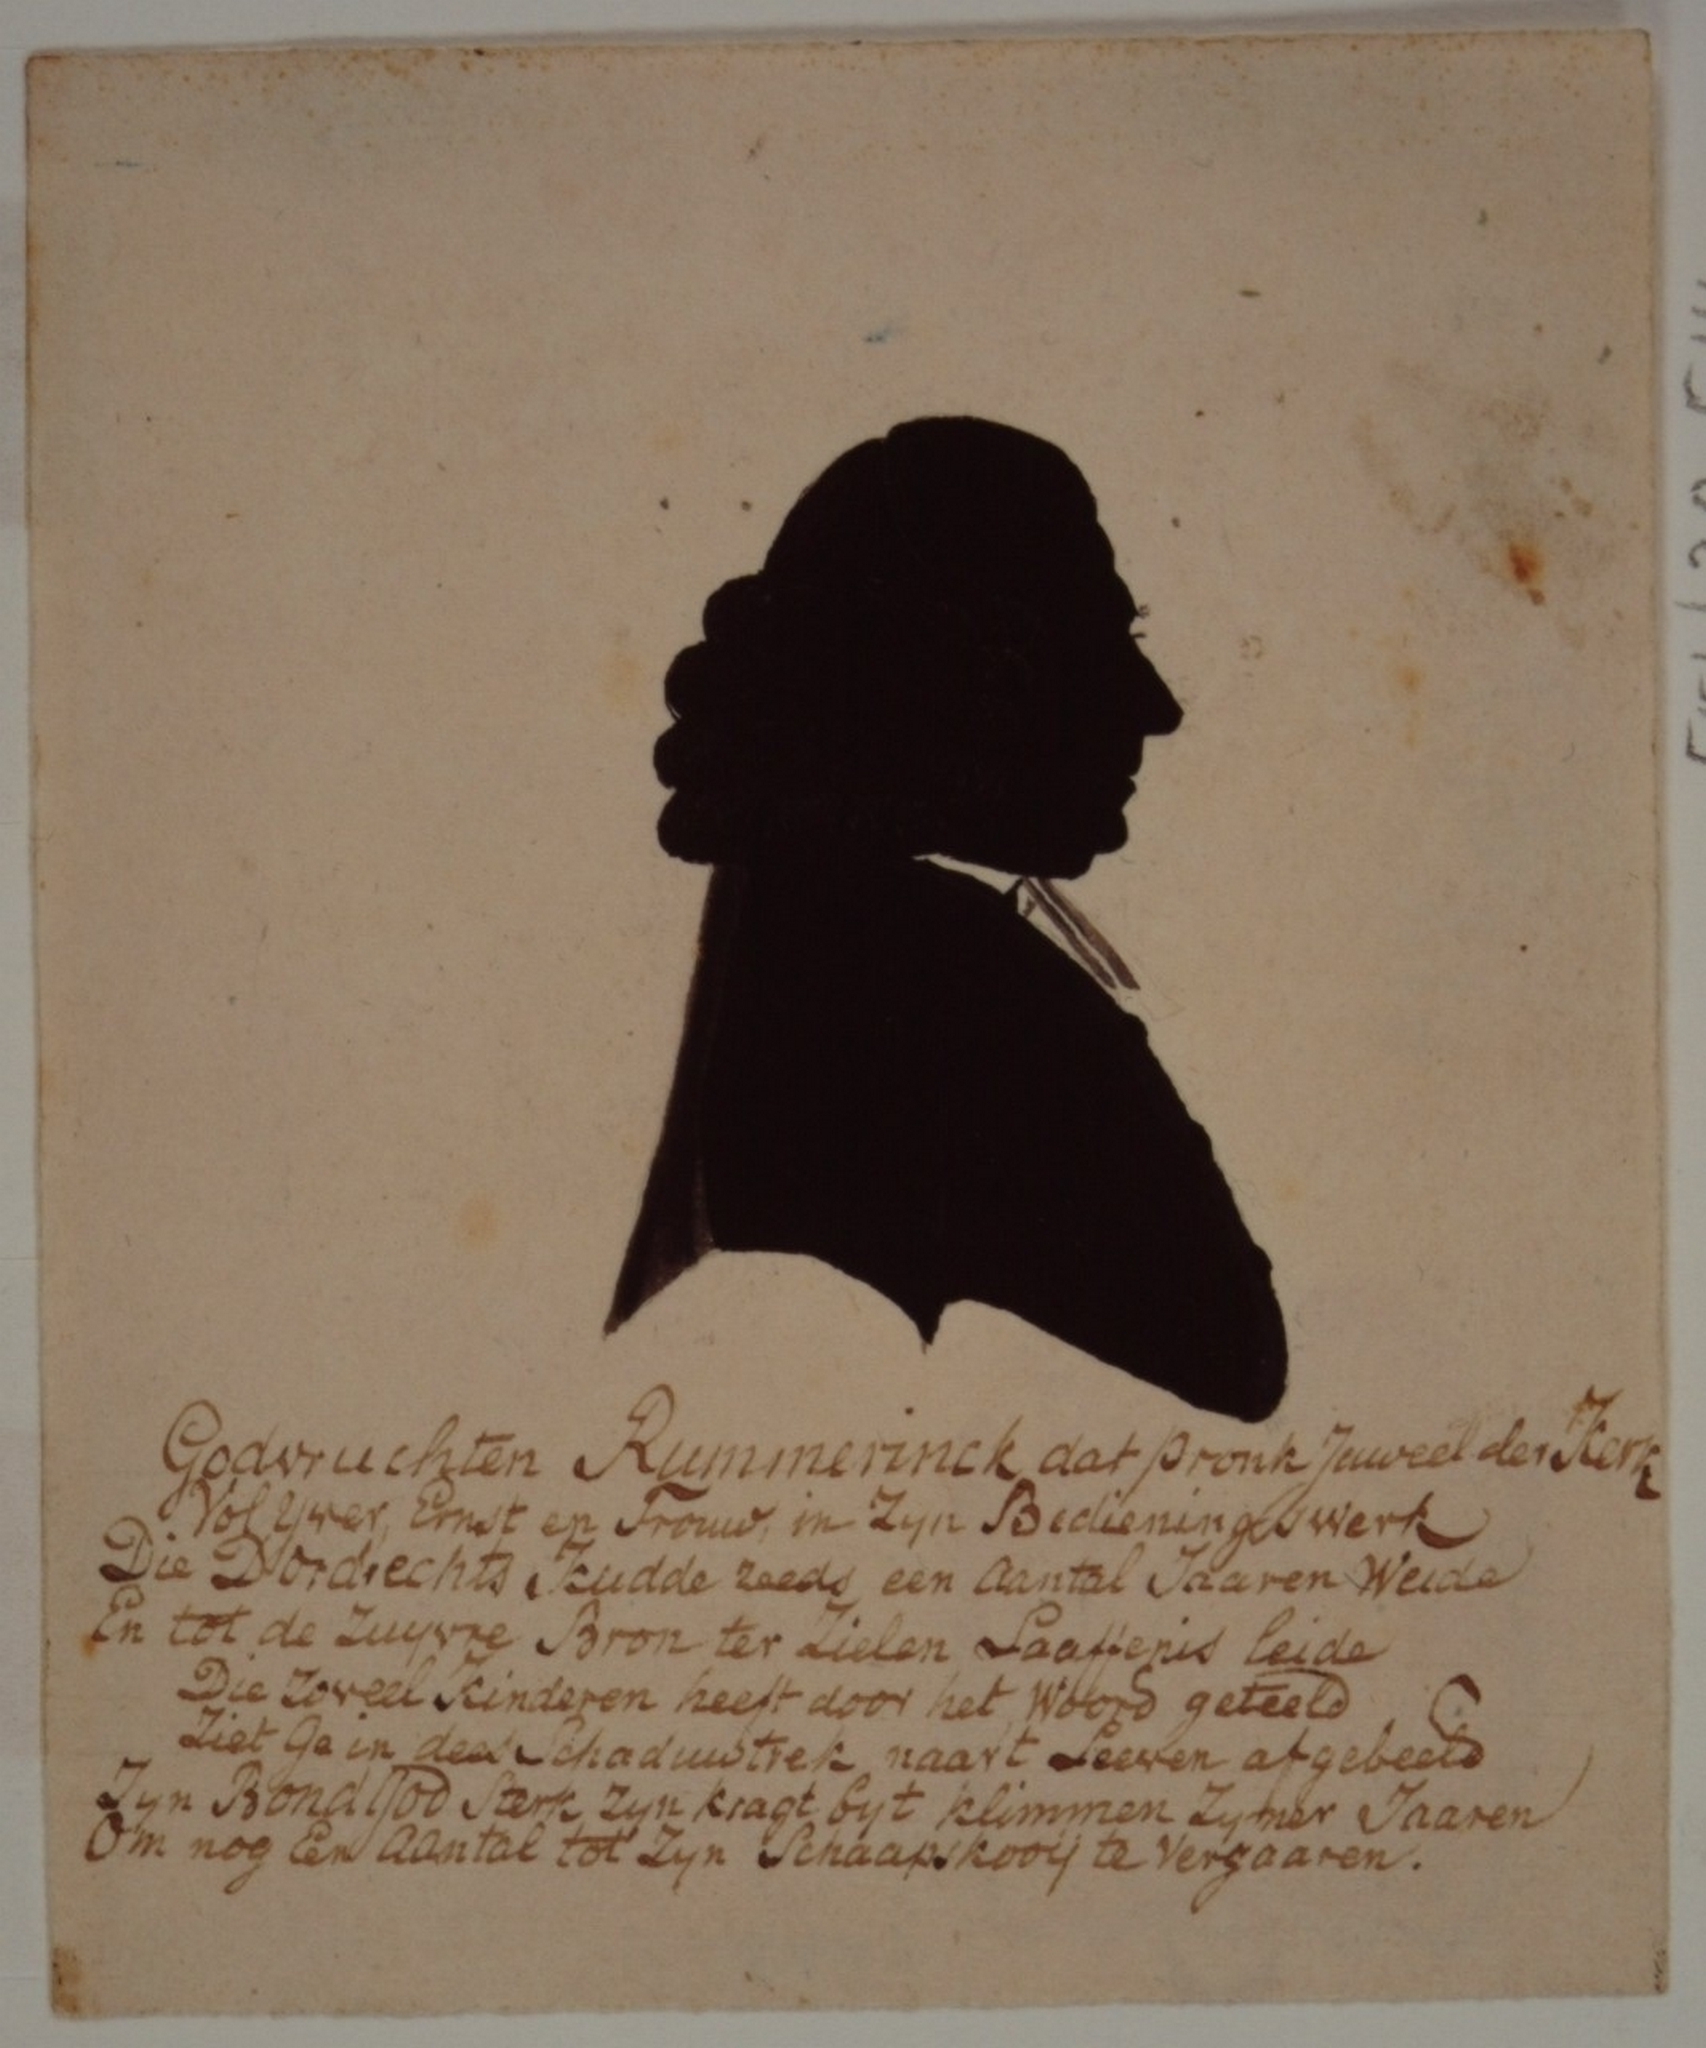 Godvruchten Rummerinck dat pronk Juweel der Kerk
Vol Yver, Ernst en Trouw, in Zyn Bedienings werk
Die Dordrechts Kudde reeds een Aantal Jaaren Weide
En tot de Zuyvre Bron ter Zielen Laaffenis leide
Die Zoveel Kinderen heeft door het Woord geteeld
Ziet Ge in dees Schaduwtrek naar't Leeven afgebeeld
Zyn Bond God Sterk Zyn kragt by't klimmen Zyner Jaaren
Om nog Een Aantal tot Zyn Schaapskooij te Vergaaren.